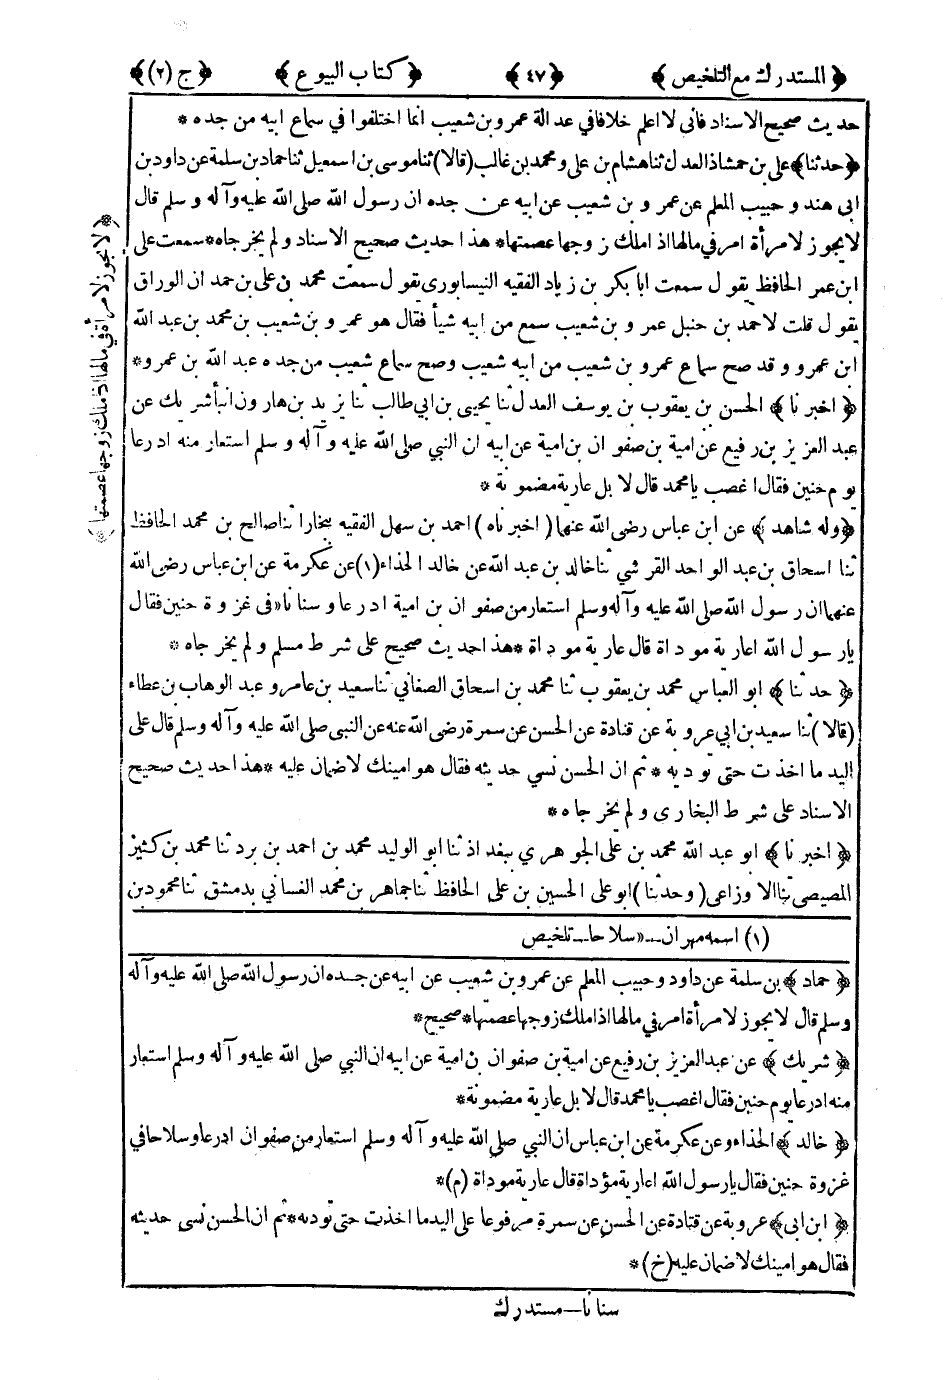 ﴿ المستدرك مع التلخيص ﴾ ﴿ ٤٧ ﴾ ﴿ كتاب البيوع ﴾ ﴿ ج (٢) ﴾
حديث صحيح الاسناد فانى لا اعلم خلافا فى عدالة عمرو بن شعيب انما اختلفوا فى سماع ابيه من جده *
﴿ حدثنا ﴾ على بن حمشاذ العدل ثنا هشام بن على و محمد بن غالب (قالا) ثنا موسى بن اسمعيل ثنا حماد بن سلمة عن داود بن
ابى هند و حبيب المعلم عن عمرو بن شعيب عن ابيه عن جده ان رسول الله صلى الله عليه وآله وسلم قال
لا يجوز لامرأة امر فى مالها اذا ملك زوجها عصمتها * هذا حديث صحيح الاسناد ولم يخرجاه * سمعت على
ابن عمر الحافظ يقول سمعت ابا بكر بن زياد الفقيه النيسابورى يقول سمعت محمد بن على بن حمدان الوراق
يقول قلت لاحمد بن حنبل عمرو بن شعيب سمع من ابيه شيأ فقال هو عمرو بن شعيب بن محمد بن عبد الله
ابن عمرو و قد صح سماع عمرو بن شعيب من ابيه شعيب وصح سماع شعيب من جده عبد الله بن عمرو *
﴿ اخبرنا ﴾ الحسن بن يعقوب بن يوسف العدل ثنا يحيى بن ابي طالب ثنا يزيد بن هارون انبأ شريك عن
عبد العزيز بن رفيع عن امية بن صفوان بن امية عن ابيه ان النبي صلى الله عليه وآله وسلم استعار منه ادرعا
يوم حنين فقال اغصب يا محمد قال لا بل عارية مضمونة *
﴿ وله شاهد ﴾ عن ابن عباس رضى الله عنهما (اخبرناه) احمد بن سهل الفقيه ببخارا ثنا صالح بن محمد الحافظ
ثنا اسحاق بن عبد الواحد القرشي ثنا خالد بن عبد الله عن خالد الحذاء (١) عن عكرمة عن ابن عباس رضى الله
عنهما ان رسول الله صلى الله عليه وآله وسلم استعار من صفوان بن امية ادرعا و سنانا «فى غزوة حنين فقال
يا رسول الله اعارية موداة قال عارية موداة * هذا حديث صحيح على شرط مسلم ولم يخرجاه *
﴿ حدثنا ﴾ ابو العباس محمد بن يعقوب ثنا محمد بن اسحاق الصغاني ثنا سعيد بن عامر و عبد الوهاب بن عطاء
(قالا) ثنا سعيد بن ابي عروبة عن قتادة عن الحسن عن سمرة رضى الله عنه عن النبى صلى الله عليه وآله وسلم قال على
اليد ما اخذت حتى تؤديه * ثم ان الحسن نسي حديثه فقال هو امينك لا ضمان عليه * هذا حديث صحيح
الاسناد على شرط البخارى ولم يخرجاه *
﴿ اخبرنا ﴾ ابو عبد الله محمد بن على الجوهري ببغداذ ثنا ابو الوليد محمد بن احمد بن برد ثنا محمد بن كثير
المصيصى ثنا الاوزاعى (وحدثنا) ابو على الحسين بن على الحافظ ثنا جماهر بن محمد الغساني بدمشق ثنا محمود بن
﴿ لا يجوز لامرأة فى مالها اذا ملك زوجها عصمتها ﴾
(١) اسمه مهران — «سلاحا — تلخيص
﴿ حماد ﴾ بن سلمة عن داود و حبيب المعلم عن عمرو بن شعيب عن ابيه عن جده ان رسول الله صلى الله عليه وآله
وسلم قال لا يجوز لامرأة امر في مالها اذا ملك زوجها عصمتها * صحيح *
﴿ شريك ﴾ عن عبد العزيز بن رفيع عن امية بن صفوان بن امية عن ابيه ان النبي صلى الله عليه وآله وسلم استعار
منه ادرعا يوم حنين فقال اغصب يا محمد قال لا بل عارية مضمونة *
﴿ خالد ﴾ الحذاء وعن عكرمة عن ابن عباس ان النبي صلى الله عليه وآله وسلم استعار من صفوان ادرعا و سلاحا في
غزوة حنين فقال يا رسول الله اعارية مؤداة قال عارية موداة (م) *
﴿ ابن ابى ﴾ عروبة عن قتادة عن الحسن عن سمرة مرفوعا على اليد ما اخذت حتى تؤديه * ثم ان الحسن نسى حديثه
فقال هو امينك لا ضمان عليه (خ) *
سنانا — مستدرك